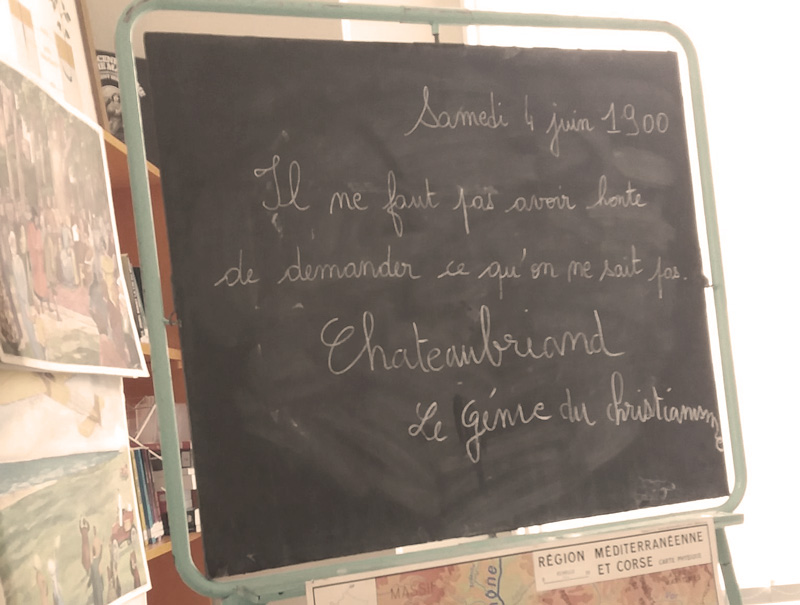 Samedi 4 juin 1900
Il ne faut pas avoir honte
de demander ce qu'on ne sait pas.
Chateaubriand
Le génie du christianisme
RÉGION MÉDITERRANÉENNE
ET CORSE CARTE PHYSIQUE
MASSIF